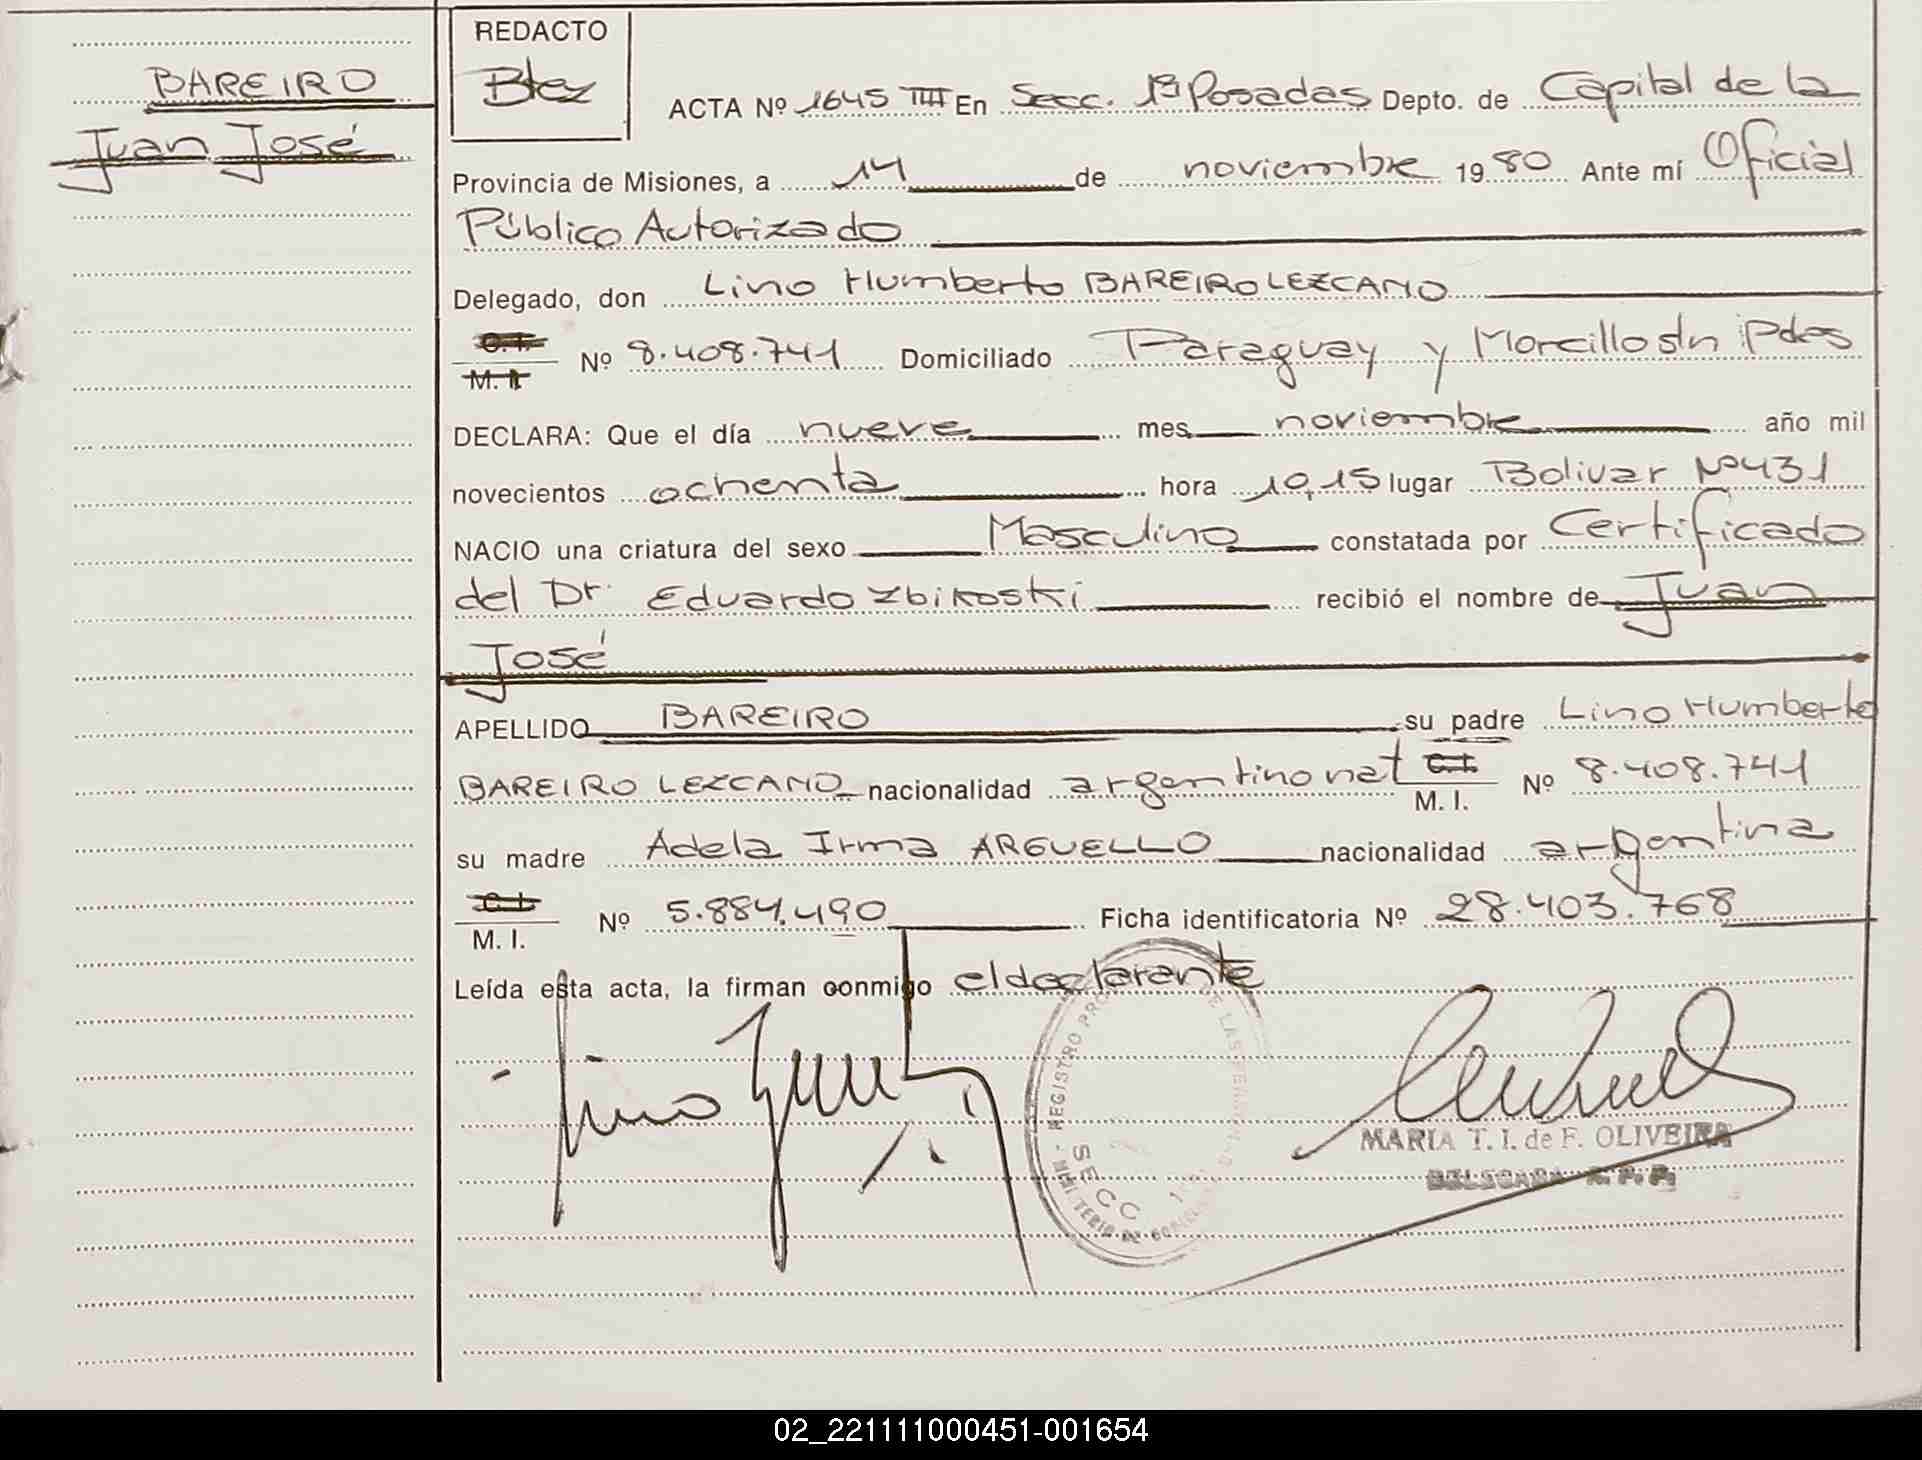 BAREIRO
Juan José
REDACTO
Btez
ACTA Nº 1645 TIII En Secc. 1ª Posadas Depto. de Capital de la
Provincia de Misiones, a 14 de noviembre 1980 Ante mí Oficial
Público Autorizado
Delegado, don Lino Humberto BAREIRO LEZCANO
C.I. M. I. Nº 8.408.741 Domiciliado Paraguay y Morcillo s/n Pdas
DECLARA: Que el día nueve mes noviembre año mil
novecientos ochenta hora 10,15 lugar Bolivar Nº 431
NACIO una criatura del sexo Masculino constatada por Certificado
del Dr. Eduardo Zbikoski recibió el nombre de Juan
José
APELLIDO BAREIRO su padre Lino Humberto
BAREIRO LEZCANO nacionalidad argentino nat C.I. M. I. Nº 8.408.741
su madre Adela Irma ARGUELLO nacionalidad argentina
C.I. M. I. Nº 5.884.490 Ficha identificatoria Nº 28.403.768
Leída esta acta, la firman conmigo el declarante
REGISTRO PRO DE LAS PER
SECC
MARIA T. I. de F. OLIVEIRA
DELEGADA R. P. P.
02_221111000451-001654